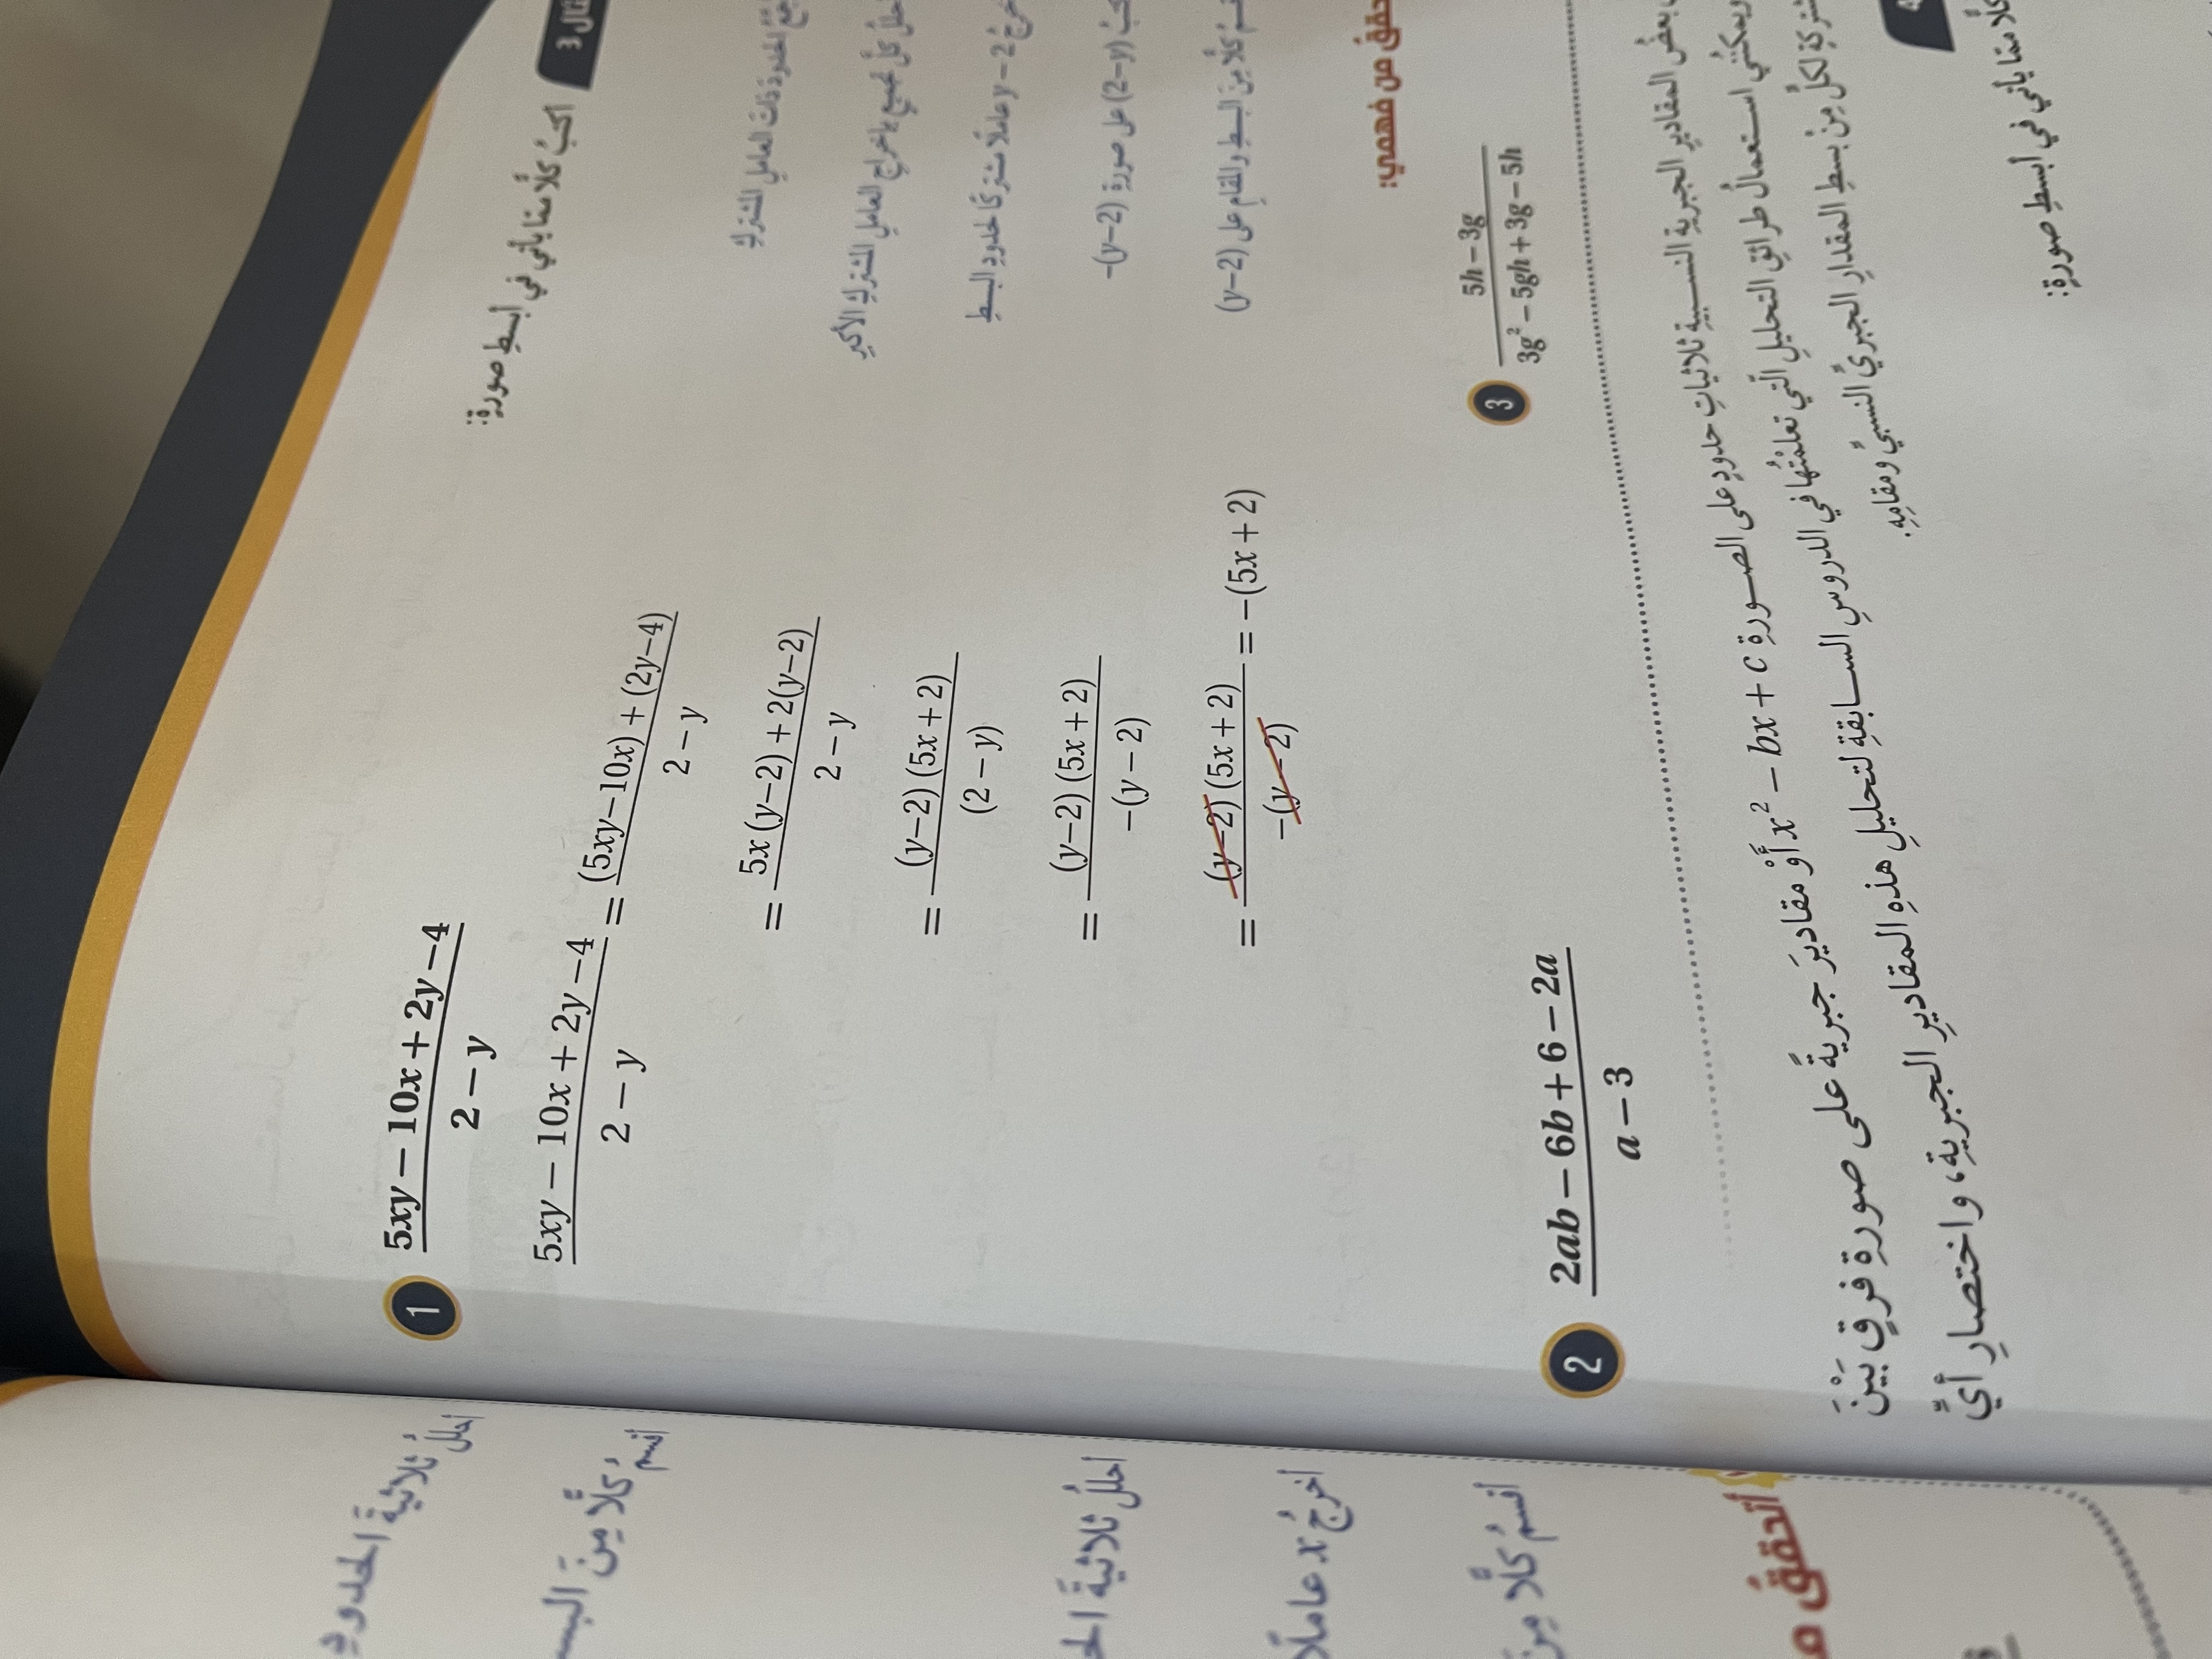 3
أكتبُ كلًّا ممّا يأتي في أبسطِ صورةٍ:
1 5xy − 10x + 2y − 4
2 − y
5xy − 10x + 2y − 4
2 − y
= (5xy−10x) + (2y−4)
2 − y
الحدودَ ذاتَ العاملِ المشتركِ
= 5x (y−2) + 2(y−2)
2 − y
بإخراجِ العاملِ المشتركِ الأكبرِ
= (y−2) (5x + 2)
(2 − y)
y − 2 عاملًا مشتركًا لحدودِ البسطِ
= (y−2) (5x + 2)
−(y − 2)
(2−y) على صورةِ −(y−2)
= (y−2) (5x + 2)
−(y − 2)
= −(5x + 2)
كلًّا مِنَ البسطِ والمقامِ على (y−2)
من فهمي:
2 2ab − 6b + 6 − 2a
a − 3
3 5h − 3g
3g² − 5gh + 3g − 5h
بعضُ المقاديرِ الجبريةِ النسبيةِ ثلاثياتِ حدودٍ على الصورةِ x² − bx + c أَوْ مقاديرَ جبريةً على صورةِ فرقٍ بَيْنَ
ويمكنُني استعمالُ طرائقِ التحليلِ الّتي تعلمْتُها في الدروسِ السابقةِ لتحليلِ هذهِ المقاديرِ الجبريةِ، واختصارِ أيِّ
لكلٍّ مِنْ بسطِ المقدارِ الجبريِّ النسبيِّ ومقامِهِ.
4
كلًّا ممّا يأتي في أبسطِ صورةٍ:
أحللُ ثلاثيةَ الحدودِ
أقسمُ كلًّا مِنَ
أحللُ ثلاثيةَ
أخرجُ x عاملًا
أقسمُ كلًّا مِنَ
أتحققُ